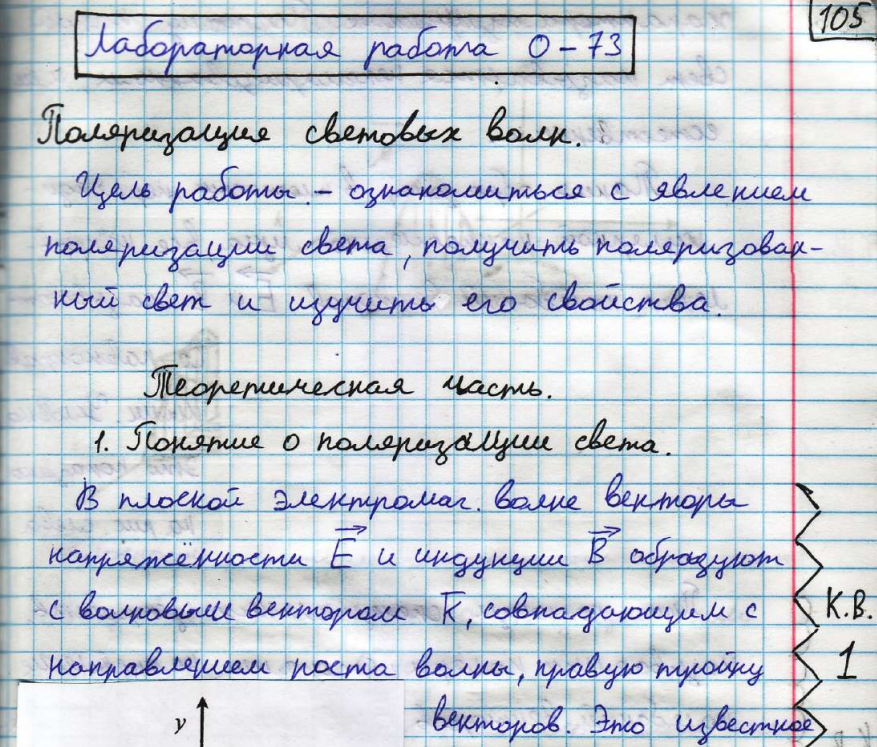 105
Лабораторная работа О-73
Поляризация световых волн.
Цель работы: - ознакомиться с явлением
поляризации света, получить поляризован-
ный свет и изучить его свойства.
Теоретическая часть.
1. Понятие о поляризации света.
В плоской электромаг. волне векторы
напряжённости E и индукции B образуют
с волновым вектором K, совпадающим с
направлением роста волны, правую тройку
векторов. Это известное
К.В.
1
y